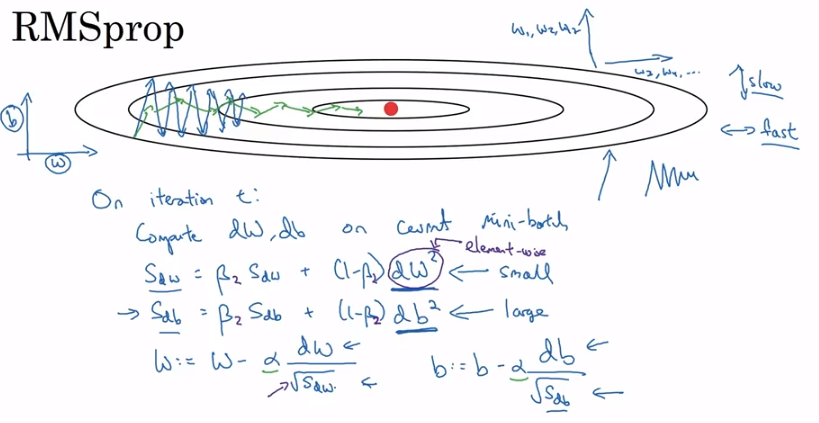 RMSprop
w₁, w₂, w₂
w₃, w₄, ...
slow
fast
b
w
On iteration t:
Compute dW, db on current mini-batch
element-wise
S_dw = β₂ S_dw + (1-β₂) dW² ← small
→ S_db = β₂ S_db + (1-β₂) db² ← large
W := W - α dW/√S_dw ←
b := b - α db/√S_db ←